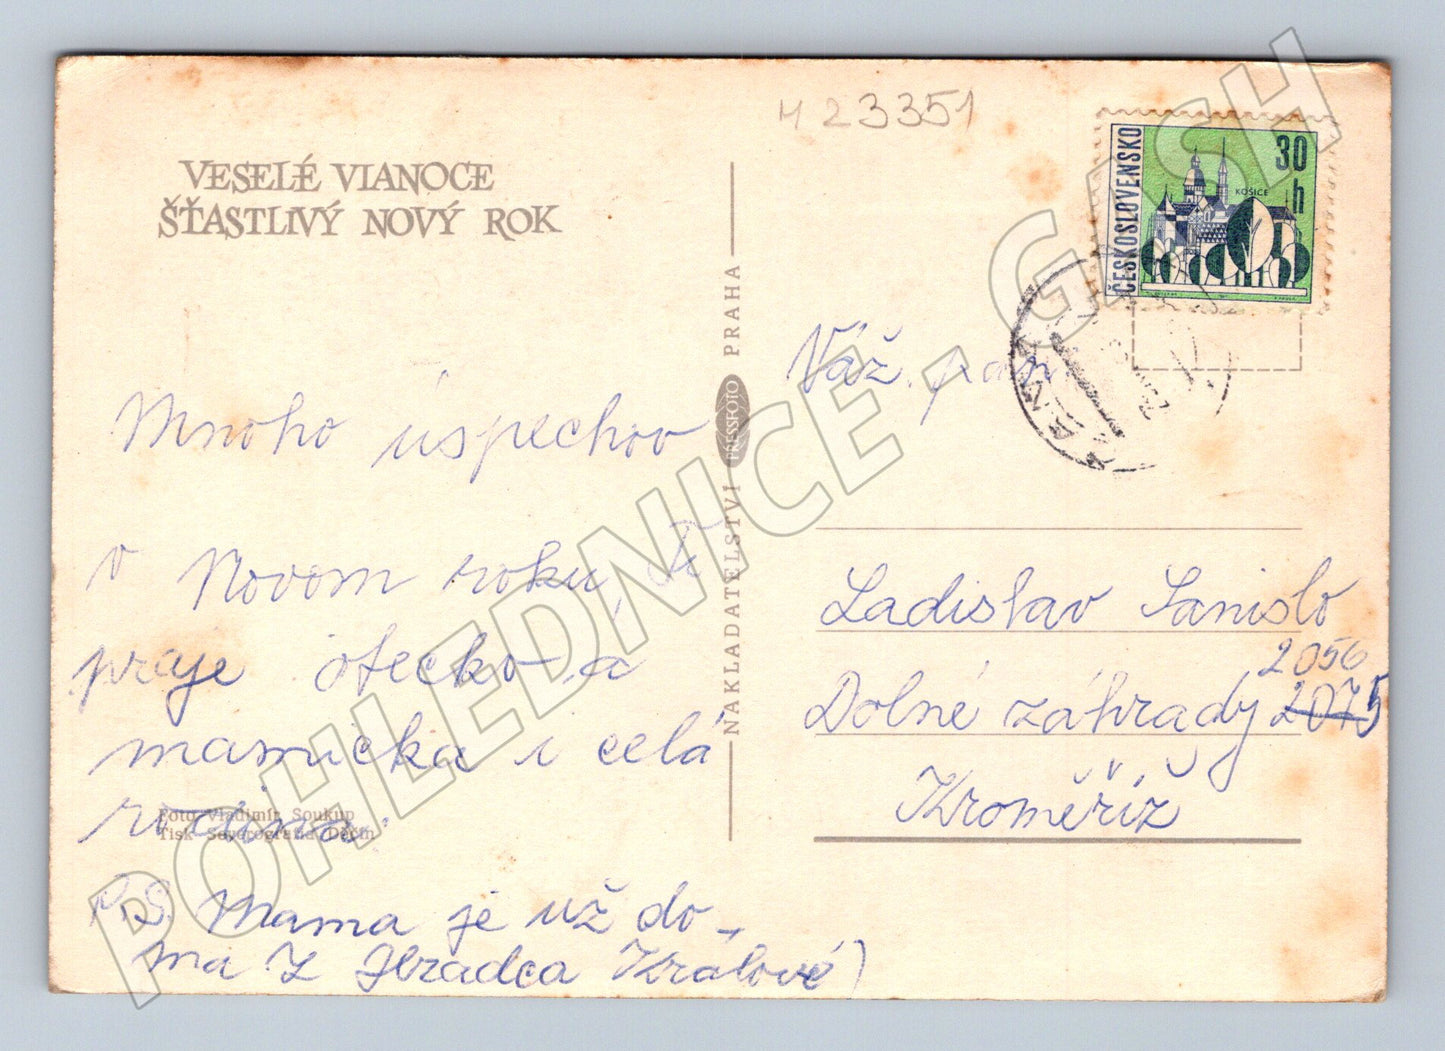 H 23351
VESELÉ VIANOCE
ŠŤASTLIVÝ NOVÝ ROK
Mnoho úspechov
v Novom roku, Ti
praje otecko a
mamička i celá
rodina.
Foto Vladimír Soukup
Tisk Severografia Děčín
P.S. Mama je už do-
ma z Hradca Králové)
NAKLADATELSTVÍ PRESSFOTO PRAHA
ČESKOSLOVENSKO
30 h
KOŠICE
Váž. pán
Ladislav Sanislo
2056
Dolné záhrady 2075
Kroměříž
POHLEDNICE - GASH